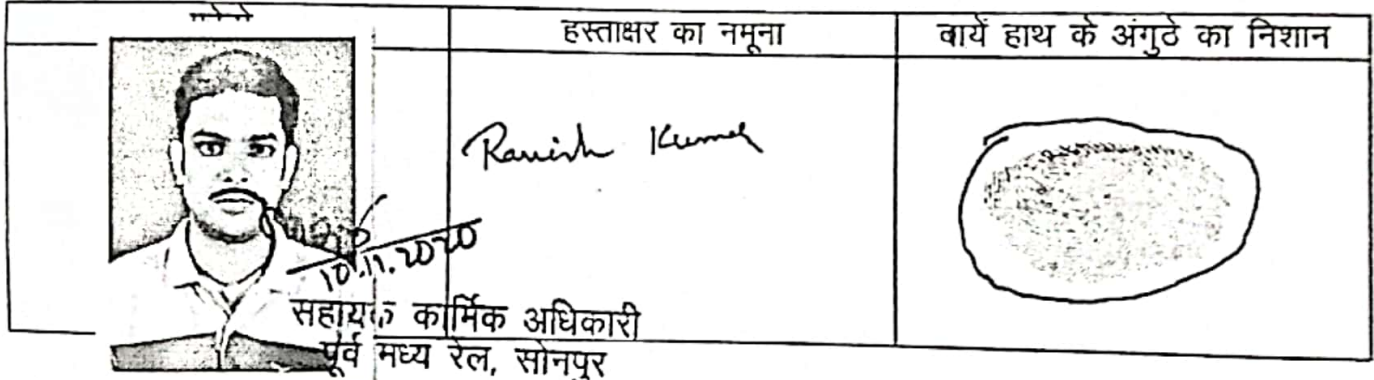 हस्ताक्षर का नमूना
बायें हाथ के अंगुठे का निशान
Ranish Kumar
10.11.2020
सहायक कार्मिक अधिकारी
पूर्व मध्य रेल, सोनपुर